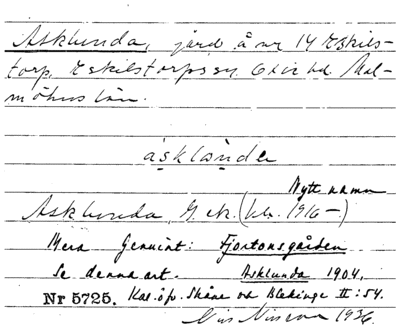 Asklunda, jord å nr 14 Eskils-
torp, Eskilstorps sn. Oxie hd. Mal-
möhus län.
asklonda
Nytt namn
Asklunda, G ek. (bb. 1916—)
Mera Genuint: Fjortonsgården
Se denna art. Asklunda 1904.
Nr 5725. Kal. öfv. Skåne och Blekinge II: 54.
1936